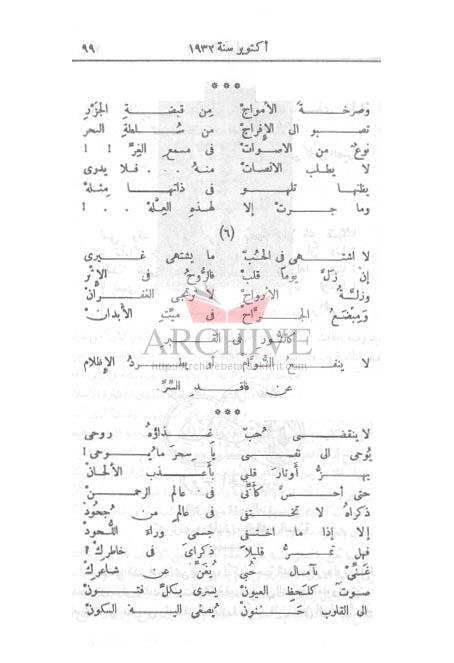 ٩٩ أكتوبر سنة ١٩٣٢
* * *
وصرخة الأمواج من قبضة الجزر
تصبو الى الإفراج من سُلطةِ البحر
نوعٌ من الاصوات فى مسمع الغِرِّ ! !
لا يطلب الانصات منه . . . فلا يدرى
يظنها تلهو فى ذاتها مِثلهْ
وما جرتْ إلا لهذِهِ العِلّهْ . . !
(٦)
لا اشتهى فى الحبّ ما يشتهى غيرى
إن زلّ يوماً قلبْ فالرُّوحُ فى الإثر
وزلَّةُ الأرواحْ لا ترتجى الغفرانْ
ومِبْضَعُ الجرَّاحْ فى ميّتِ الأبدانْ
كالنُّورِ فى القبرِ
لا ينفعُ النُّوَّامْ أو يطردُ الإظلام
عن فاقدِ السِّرِّ.
* * *
لا ينقضى حُبٌّ غِذاؤهُ روحى
يُوحى الى نفسى يا سِحرَ ما يُوحى!
يهزُّ أوتارَ قلبى بأعذبِ الألحانْ
حتى أحسَّ كأنّى فى عالم الرحمنْ
ذكراهُ لا تختفى فى عالمٍ من جُحُودْ
إلا إذا ما اختفى جسمى وراءَ اللّحودْ
فهل تمرُّ قليلاً ذكراىَ فى خاطرِكْ ؟
غنَّىْ بآمال حُبى يُغَنَّ عن شاعرِكْ
صوتٌ كلحظِ العيونْ يسرى بكلِّ فتونْ
الى القلوبِ حَنُونْ يُصغى اليهِ السكونْ
ARCHIVE
http://archivebeta.sakhrit.com